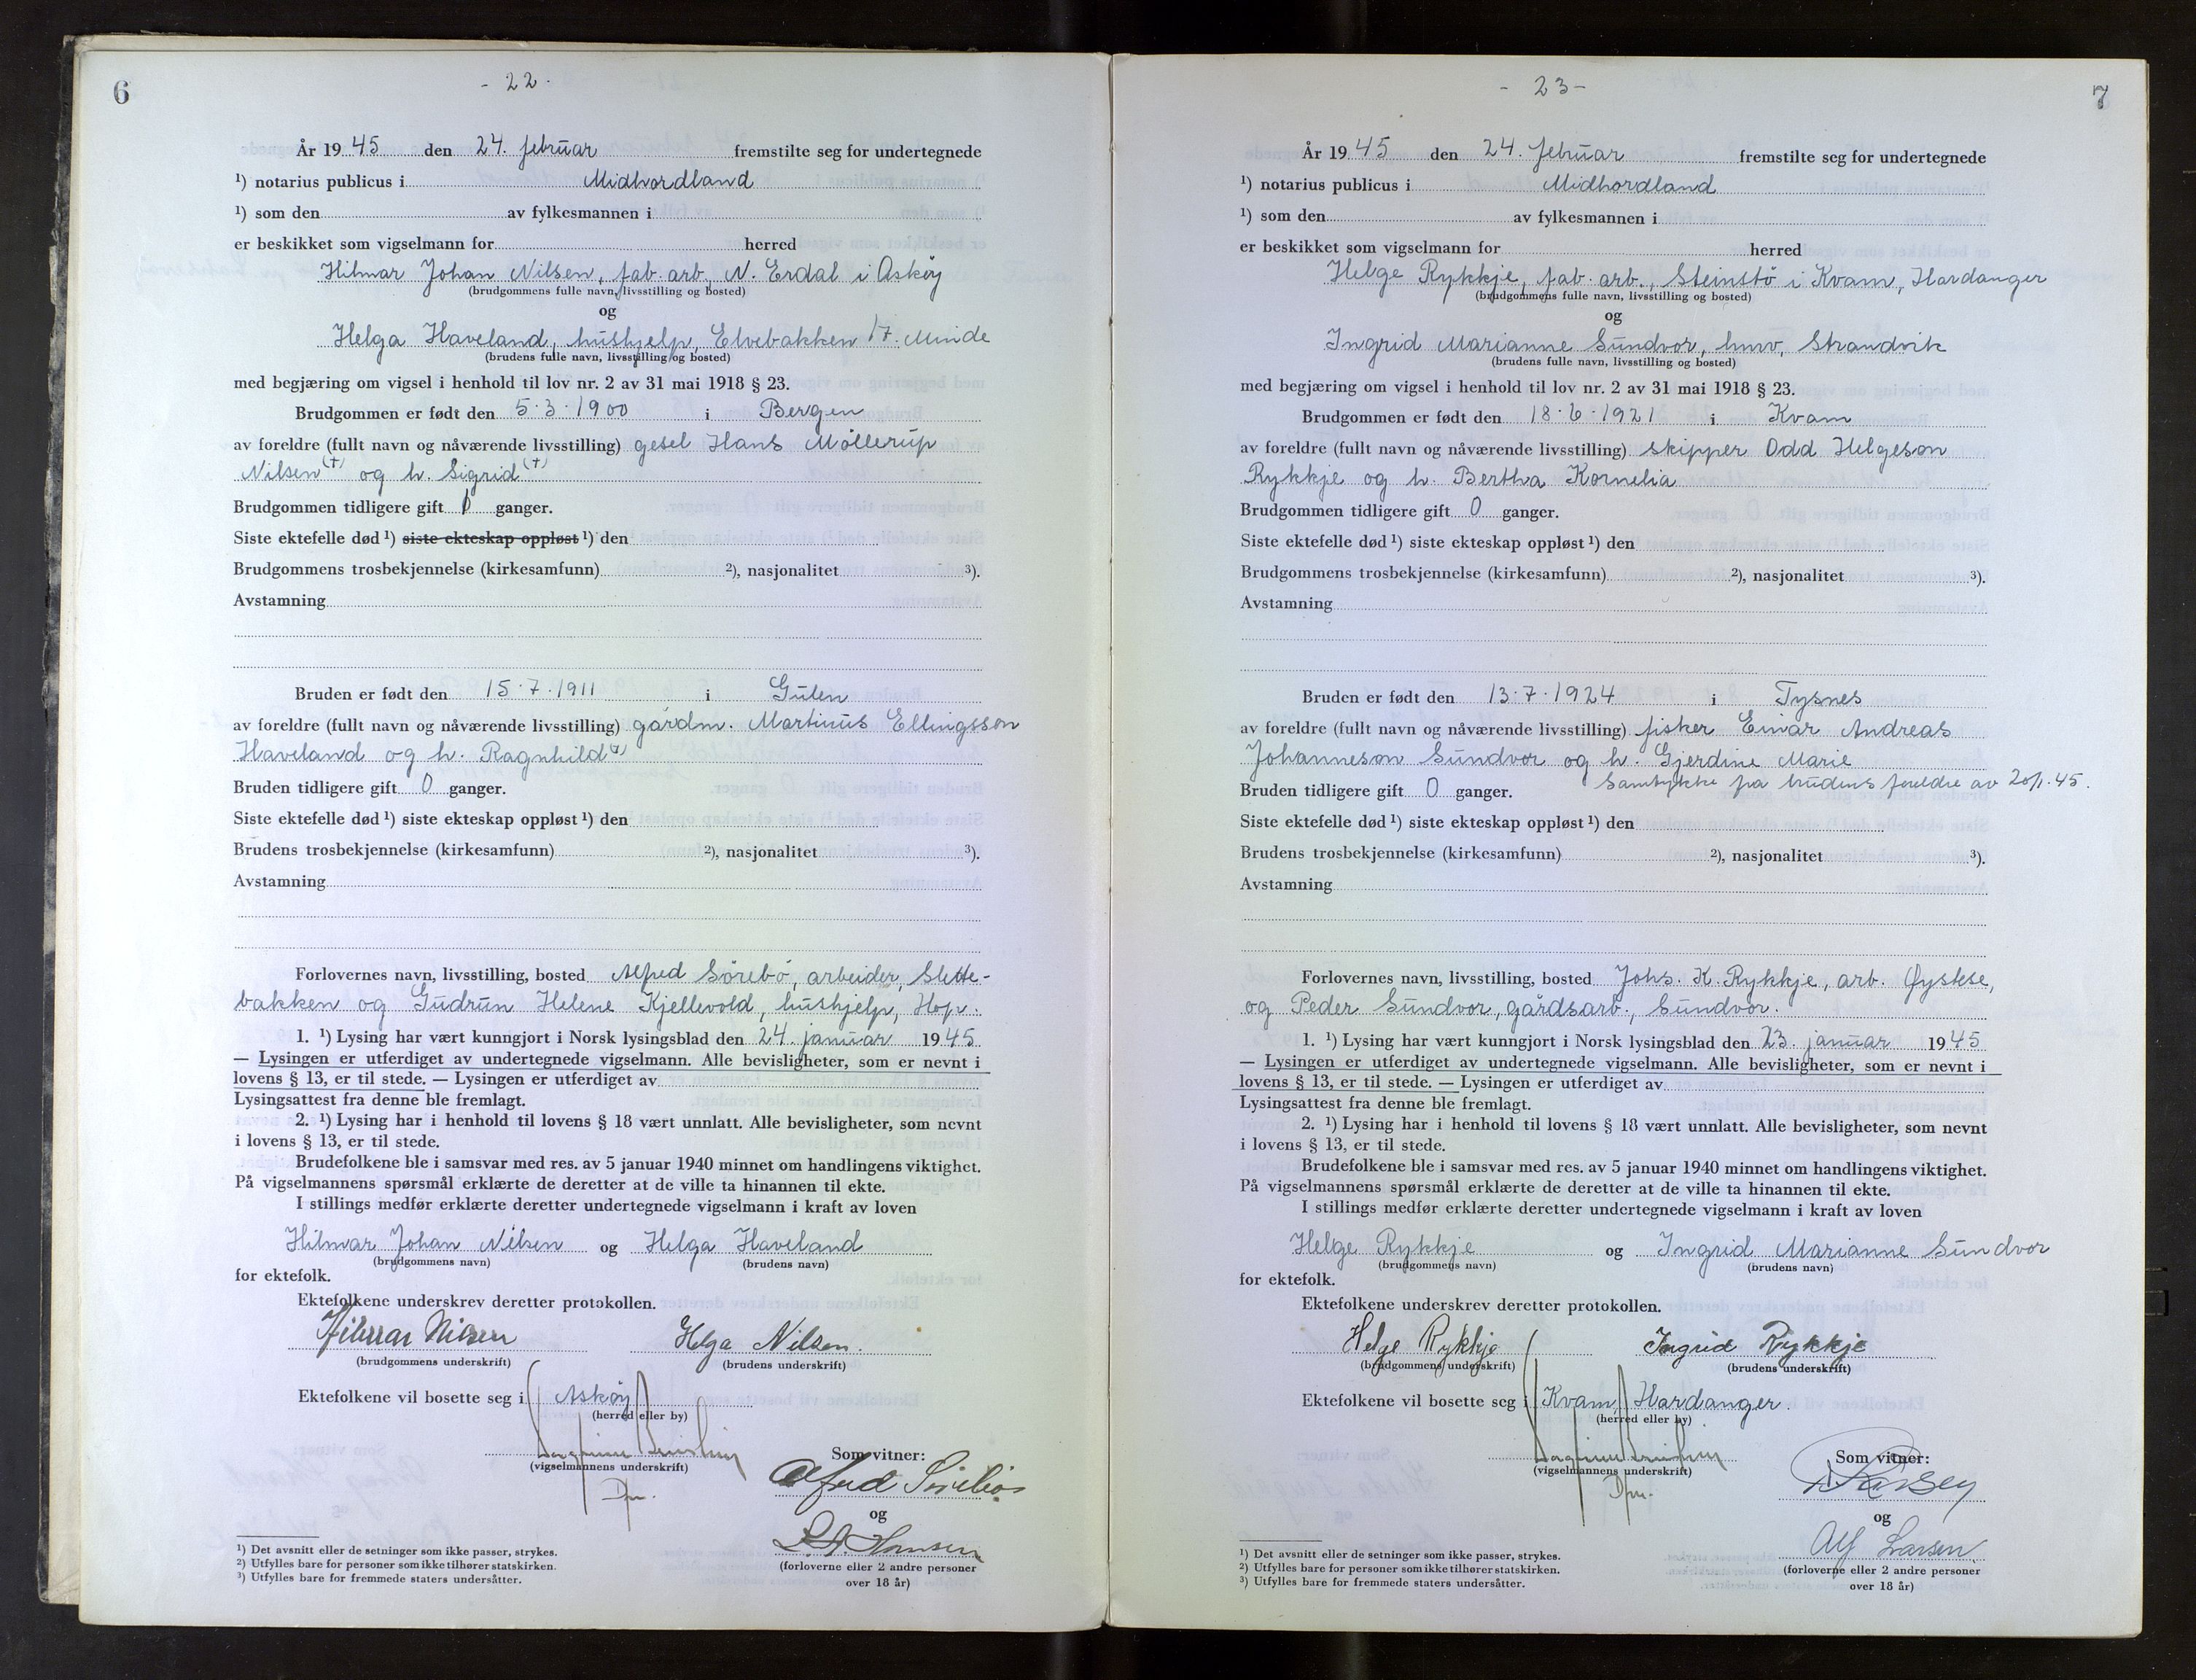 6
- 22 -
År 1945 den 24. februar fremstilte seg for undertegnede
¹) notarius publicus i Midhordland
¹) som den av fylkesmannen i
er beskikket som vigselmann for herred
Hilmar Johan Nilsen, fab. arb., N. Erdal i Askøy
(brudgommens fulle navn, livsstilling og bosted)
og
Helga Haveland, hushjelp, Elvebakken 17. Minde
(brudens fulle navn, livsstilling og bosted)
med begjæring om vigsel i henhold til lov nr. 2 av 31 mai 1918 § 23.
Brudgommen er født den 5.3.1900 i Bergen
av foreldre (fullt navn og nåværende livsstilling) gesel Hans Möllerup
Nilsen(+) og h. Sigrid(+)
Brudgommen tidligere gift ganger.
Siste ektefelle død¹) siste ekteskap oppløst¹) den
Brudgommens trosbekjennelse (kirkesamfunn) ²), nasjonalitet ³).
Avstamning
Bruden er født den 15.7.1911 i Gulen
av foreldre (fullt navn og nåværende livsstilling) gårdm. Martinus Ellingsson
Haveland og h. Ragnhild
Bruden tidligere gift 0 ganger.
Siste ektefelle død¹) siste ekteskap oppløst¹) den
Brudens trosbekjennelse (kirkesamfunn) ²), nasjonalitet ³).
Avstamning
Forlovernes navn, livsstilling, bosted Alfred Sörebö, arbeider, Slette-
bakken og Gudrun Helene Kjellevold, hushjelp, Hop.
1. ¹) Lysing har vært kunngjort i Norsk lysingsblad den 24. januar 1945
— Lysingen er utferdiget av undertegnede vigselmann. Alle bevisligheter, som er nevnt i
lovens § 13, er til stede. — Lysingen er utferdiget av
Lysingsattest fra denne ble fremlagt.
2. ¹) Lysing har i henhold til lovens § 18 vært unnlatt. Alle bevisligheter, som nevnt
i lovens § 13, er til stede.
Brudefolkene ble i samsvar med res. av 5 januar 1940 minnet om handlingens viktighet.
På vigselmannens spørsmål erklærte de deretter at de ville ta hinannen til ekte.
I stillings medfør erklærte deretter undertegnede vigselmann i kraft av loven
Hilmar Johan Nilsen og Helga Haveland
(brudgommens navn) (brudens navn)
for ektefolk.
Ektefolkene underskrev deretter protokollen.
Hilmar Nilsen Helga Nilsen.
(brudgommens underskrift) (brudens underskrift)
Ektefolkene vil bosette seg i Askøy
(herred eller by)
Som vitner:
(vigselmannens underskrift)
Alfred Sörebö
og
Hansen
(forloverne eller 2 andre personer
over 18 år)
¹) Det avsnitt eller de setninger som ikke passer, strykes.
²) Utfylles bare for personer som ikke tilhører statskirken.
³) Utfylles bare for fremmede staters undersåtter.
7
- 23 -
År 1945 den 24. februar fremstilte seg for undertegnede
¹) notarius publicus i Midhordland
¹) som den av fylkesmannen i
er beskikket som vigselmann for herred
Helge Rykkje, fab. arb., Steinstö i Kvam, Hardanger
(brudgommens fulle navn, livsstilling og bosted)
og
Ingrid Marianne Sundvor, hmv, Strandvik
(brudens fulle navn, livsstilling og bosted)
med begjæring om vigsel i henhold til lov nr. 2 av 31 mai 1918 § 23.
Brudgommen er født den 18.6.1921 i Kvam
av foreldre (fullt navn og nåværende livsstilling) skipper Odd Helgeson
Rykkje og h. Bertha Kornelia
Brudgommen tidligere gift 0 ganger.
Siste ektefelle død¹) siste ekteskap oppløst¹) den
Brudgommens trosbekjennelse (kirkesamfunn) ²), nasjonalitet ³).
Avstamning
Bruden er født den 13.7.1924 i Tysnes
av foreldre (fullt navn og nåværende livsstilling) fisker Einar Andreas
Johanneson Sundvor og h. Gjerdine Marie
Samtykke fra brudens foreldre av 20/1.45.
Bruden tidligere gift 0 ganger.
Siste ektefelle død¹) siste ekteskap oppløst¹) den
Brudens trosbekjennelse (kirkesamfunn) ²), nasjonalitet ³).
Avstamning
Forlovernes navn, livsstilling, bosted Johs. K. Rykkje, arb. Øystese,
og Peder Sundvor, gårdsarb., Sundvor.
1. ¹) Lysing har vært kunngjort i Norsk lysingsblad den 23. januar 1945
— Lysingen er utferdiget av undertegnede vigselmann. Alle bevisligheter, som er nevnt i
lovens § 13, er til stede. — Lysingen er utferdiget av
Lysingsattest fra denne ble fremlagt.
2. ¹) Lysing har i henhold til lovens § 18 vært unnlatt. Alle bevisligheter, som nevnt
i lovens § 13, er til stede.
Brudefolkene ble i samsvar med res. av 5 januar 1940 minnet om handlingens viktighet.
På vigselmannens spørsmål erklærte de deretter at de ville ta hinannen til ekte.
I stillings medfør erklærte deretter undertegnede vigselmann i kraft av loven
Helge Rykkje og Ingrid Marianne Sundvor
(brudgommens navn) (brudens navn)
for ektefolk.
Ektefolkene underskrev deretter protokollen.
Helge Rykkje Ingrid Rykkje
(brudgommens underskrift) (brudens underskrift)
Ektefolkene vil bosette seg i Kvam, Hardanger.
(herred eller by)
Som vitner:
(vigselmannens underskrift)
og
Alf Larsen
(forloverne eller 2 andre personer
over 18 år)
¹) Det avsnitt eller de setninger som ikke passer, strykes.
²) Utfylles bare for personer som ikke tilhører statskirken.
³) Utfylles bare for fremmede staters undersåtter.